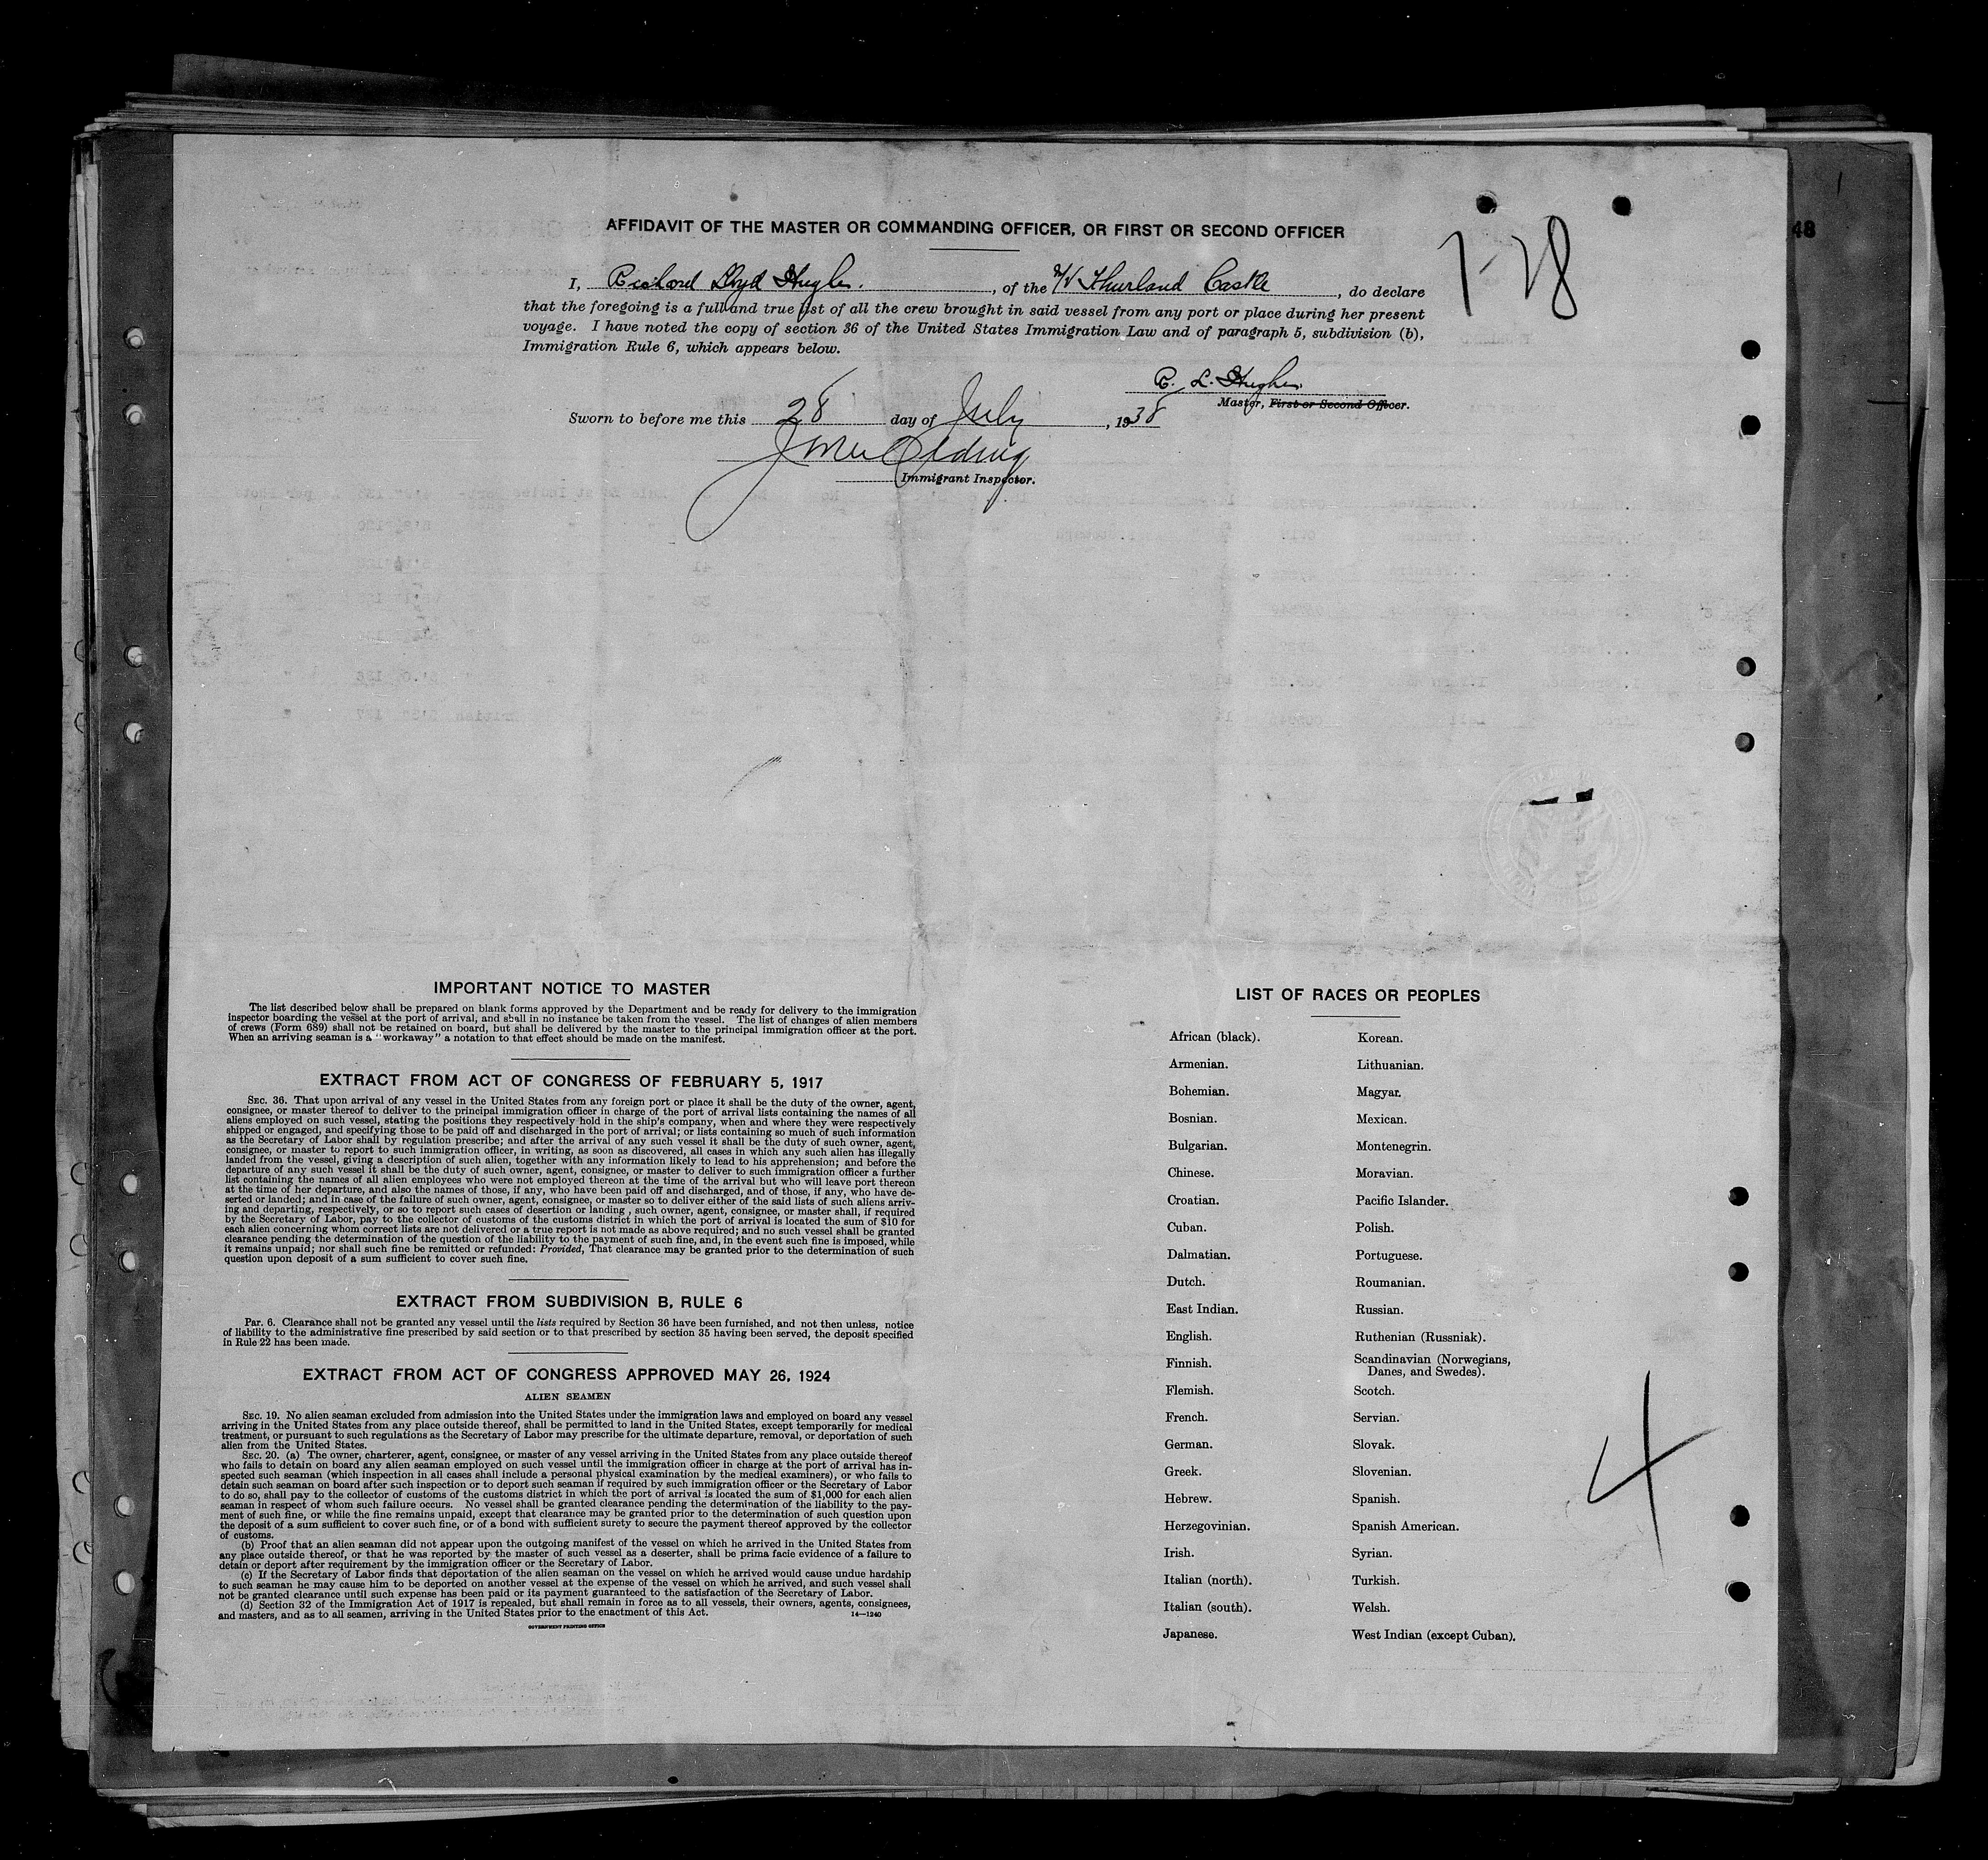 48
7-28
AFFIDAVIT OF THE MASTER OR COMMANDING OFFICER, OR FIRST OR SECOND OFFICER
I, Richard Lloyd Hughes. , of the Thurland Castle , do declare
that the foregoing is a full and true list of all the crew brought in said vessel from any port or place during her present
voyage. I have noted the copy of section 36 of the United States Immigration Law and of paragraph 5, subdivision (b),
Immigration Rule 6, which appears below.
R. L. Hughes
Master, First or Second Officer.
Sworn to before me this 28 day of July , 1938
Immigrant Inspector.
IMPORTANT NOTICE TO MASTER
The list described below shall be prepared on blank forms approved by the Department and be ready for delivery to the immigration
inspector boarding the vessel at the port of arrival, and shall in no instance be taken from the vessel. The list of changes of alien members
of crews (Form 689) shall not be retained on board, but shall be delivered by the master to the principal immigration officer at the port.
When an arriving seaman is a "workaway" a notation to that effect should be made on the manifest.
EXTRACT FROM ACT OF CONGRESS OF FEBRUARY 5, 1917
SEC. 36. That upon arrival of any vessel in the United States from any foreign port or place it shall be the duty of the owner, agent,
consignee, or master thereof to deliver to the principal immigration officer in charge of the port of arrival lists containing the names of all
aliens employed on such vessel, stating the positions they respectively hold in the ship's company, when and where they were respectively
shipped or engaged, and specifying those to be paid off and discharged in the port of arrival; or lists containing so much of such information
as the Secretary of Labor shall by regulation prescribe; and after the arrival of any such vessel it shall be the duty of such owner, agent,
consignee, or master to report to such immigration officer, in writing, as soon as discovered, all cases in which any such alien has illegally
landed from the vessel, giving a description of such alien, together with any information likely to lead to his apprehension; and before the
departure of any such vessel it shall be the duty of such owner, agent, consignee, or master to deliver to such immigration officer a further
list containing the names of all alien employees who were not employed thereon at the time of the arrival but who will leave port thereon
at the time of her departure, and also the names of those, if any, who have been paid off and discharged, and of those, if any, who have de-
serted or landed; and in case of the failure of such owner, agent, consignee, or master so to deliver either of the said lists of such aliens arriv-
ing and departing, respectively, or so to report such cases of desertion or landing, such owner, agent, consignee, or master shall, if required
by the Secretary of Labor, pay to the collector of customs of the customs district in which the port of arrival is located the sum of $10 for
each alien concerning whom correct lists are not delivered or a true report is not made as above required; and no such vessel shall be granted
clearance pending the determination of the question of the liability to the payment of such fine, and, in the event such fine is imposed, while
it remains unpaid; nor shall such fine be remitted or refunded: Provided, That clearance may be granted prior to the determination of such
question upon deposit of a sum sufficient to cover such fine.
EXTRACT FROM SUBDIVISION B, RULE 6
PAR. 6. Clearance shall not be granted any vessel until the lists required by Section 36 have been furnished, and not then unless, notice
of liability to the administrative fine prescribed by said section or to that prescribed by section 35 having been served, the deposit specified
in Rule 22 has been made.
EXTRACT FROM ACT OF CONGRESS APPROVED MAY 26, 1924
ALIEN SEAMEN
SEC. 19. No alien seaman excluded from admission into the United States under the immigration laws and employed on board any vessel
arriving in the United States from any place outside thereof, shall be permitted to land in the United States, except temporarily for medical
treatment, or pursuant to such regulations as the Secretary of Labor may prescribe for the ultimate departure, removal, or deportation of such
alien from the United States.
SEC. 20. (a) The owner, charterer, agent, consignee, or master of any vessel arriving in the United States from any place outside thereof
who fails to detain on board any alien seaman employed on such vessel until the immigration officer in charge at the port of arrival has in-
spected such seaman (which inspection in all cases shall include a personal physical examination by the medical examiners), or who fails to
detain such seaman on board after such inspection or to deport such seaman if required by such immigration officer or the Secretary of Labor
to do so, shall pay to the collector of customs of the customs district in which the port of arrival is located the sum of $1,000 for each alien
seaman in respect of whom such failure occurs. No vessel shall be granted clearance pending the determination of the liability to the pay-
ment of such fine, or while the fine remains unpaid, except that clearance may be granted prior to the determination of such question upon
the deposit of a sum sufficient to cover such fine, or of a bond with sufficient surety to secure the payment thereof approved by the collector
of customs.
(b) Proof that an alien seaman did not appear upon the outgoing manifest of the vessel on which he arrived in the United States from
any place outside thereof, or that he was reported by the master of such vessel as a deserter, shall be prima facie evidence of a failure to
detain or deport after requirement by the immigration officer or the Secretary of Labor.
(c) If the Secretary of Labor finds that deportation of the alien seaman on the vessel on which he arrived would cause undue hardship
to such seaman he may cause him to be deported on another vessel at the expense of the vessel on which he arrived, and such vessel shall
not be granted clearance until such expense has been paid or its payment guaranteed to the satisfaction of the Secretary of Labor.
(d) Section 32 of the Immigration Act of 1917 is repealed, but shall remain in force as to all vessels, their owners, agents, consignees,
and masters, and as to all seamen, arriving in the United States prior to the enactment of this Act.
14—1240
GOVERNMENT PRINTING OFFICE
LIST OF RACES OR PEOPLES
African (black).
Armenian.
Bohemian.
Bosnian.
Bulgarian.
Chinese.
Croatian.
Cuban.
Dalmatian.
Dutch.
East Indian.
English.
Finnish.
Flemish.
French.
German.
Greek.
Hebrew.
Herzegovinian.
Irish.
Italian (north).
Italian (south).
Japanese.
Korean.
Lithuanian.
Magyar.
Mexican.
Montenegrin.
Moravian.
Pacific Islander.
Polish.
Portuguese.
Roumanian.
Russian.
Ruthenian (Russniak).
Scandinavian (Norwegians,
Danes, and Swedes).
Scotch.
Servian.
Slovak.
Slovenian.
Spanish.
Spanish American.
Syrian.
Turkish.
Welsh.
West Indian (except Cuban).
4